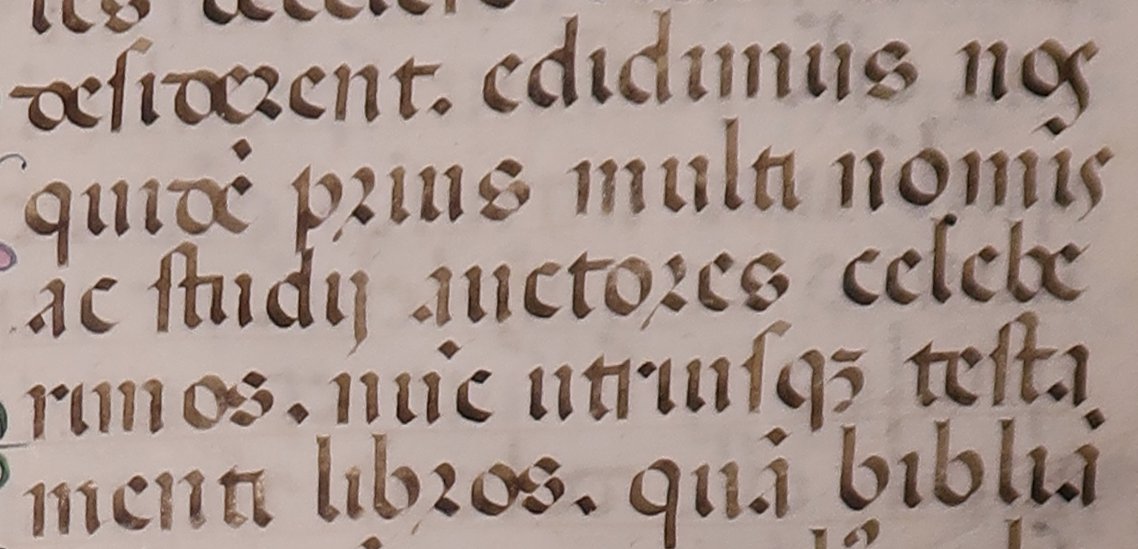 desiderent. edidimus nos
quidē prius multi nominis
ac studij auctores celebe
rimos. nūc utriusqꝫ testa
menti libros. quā bibliā